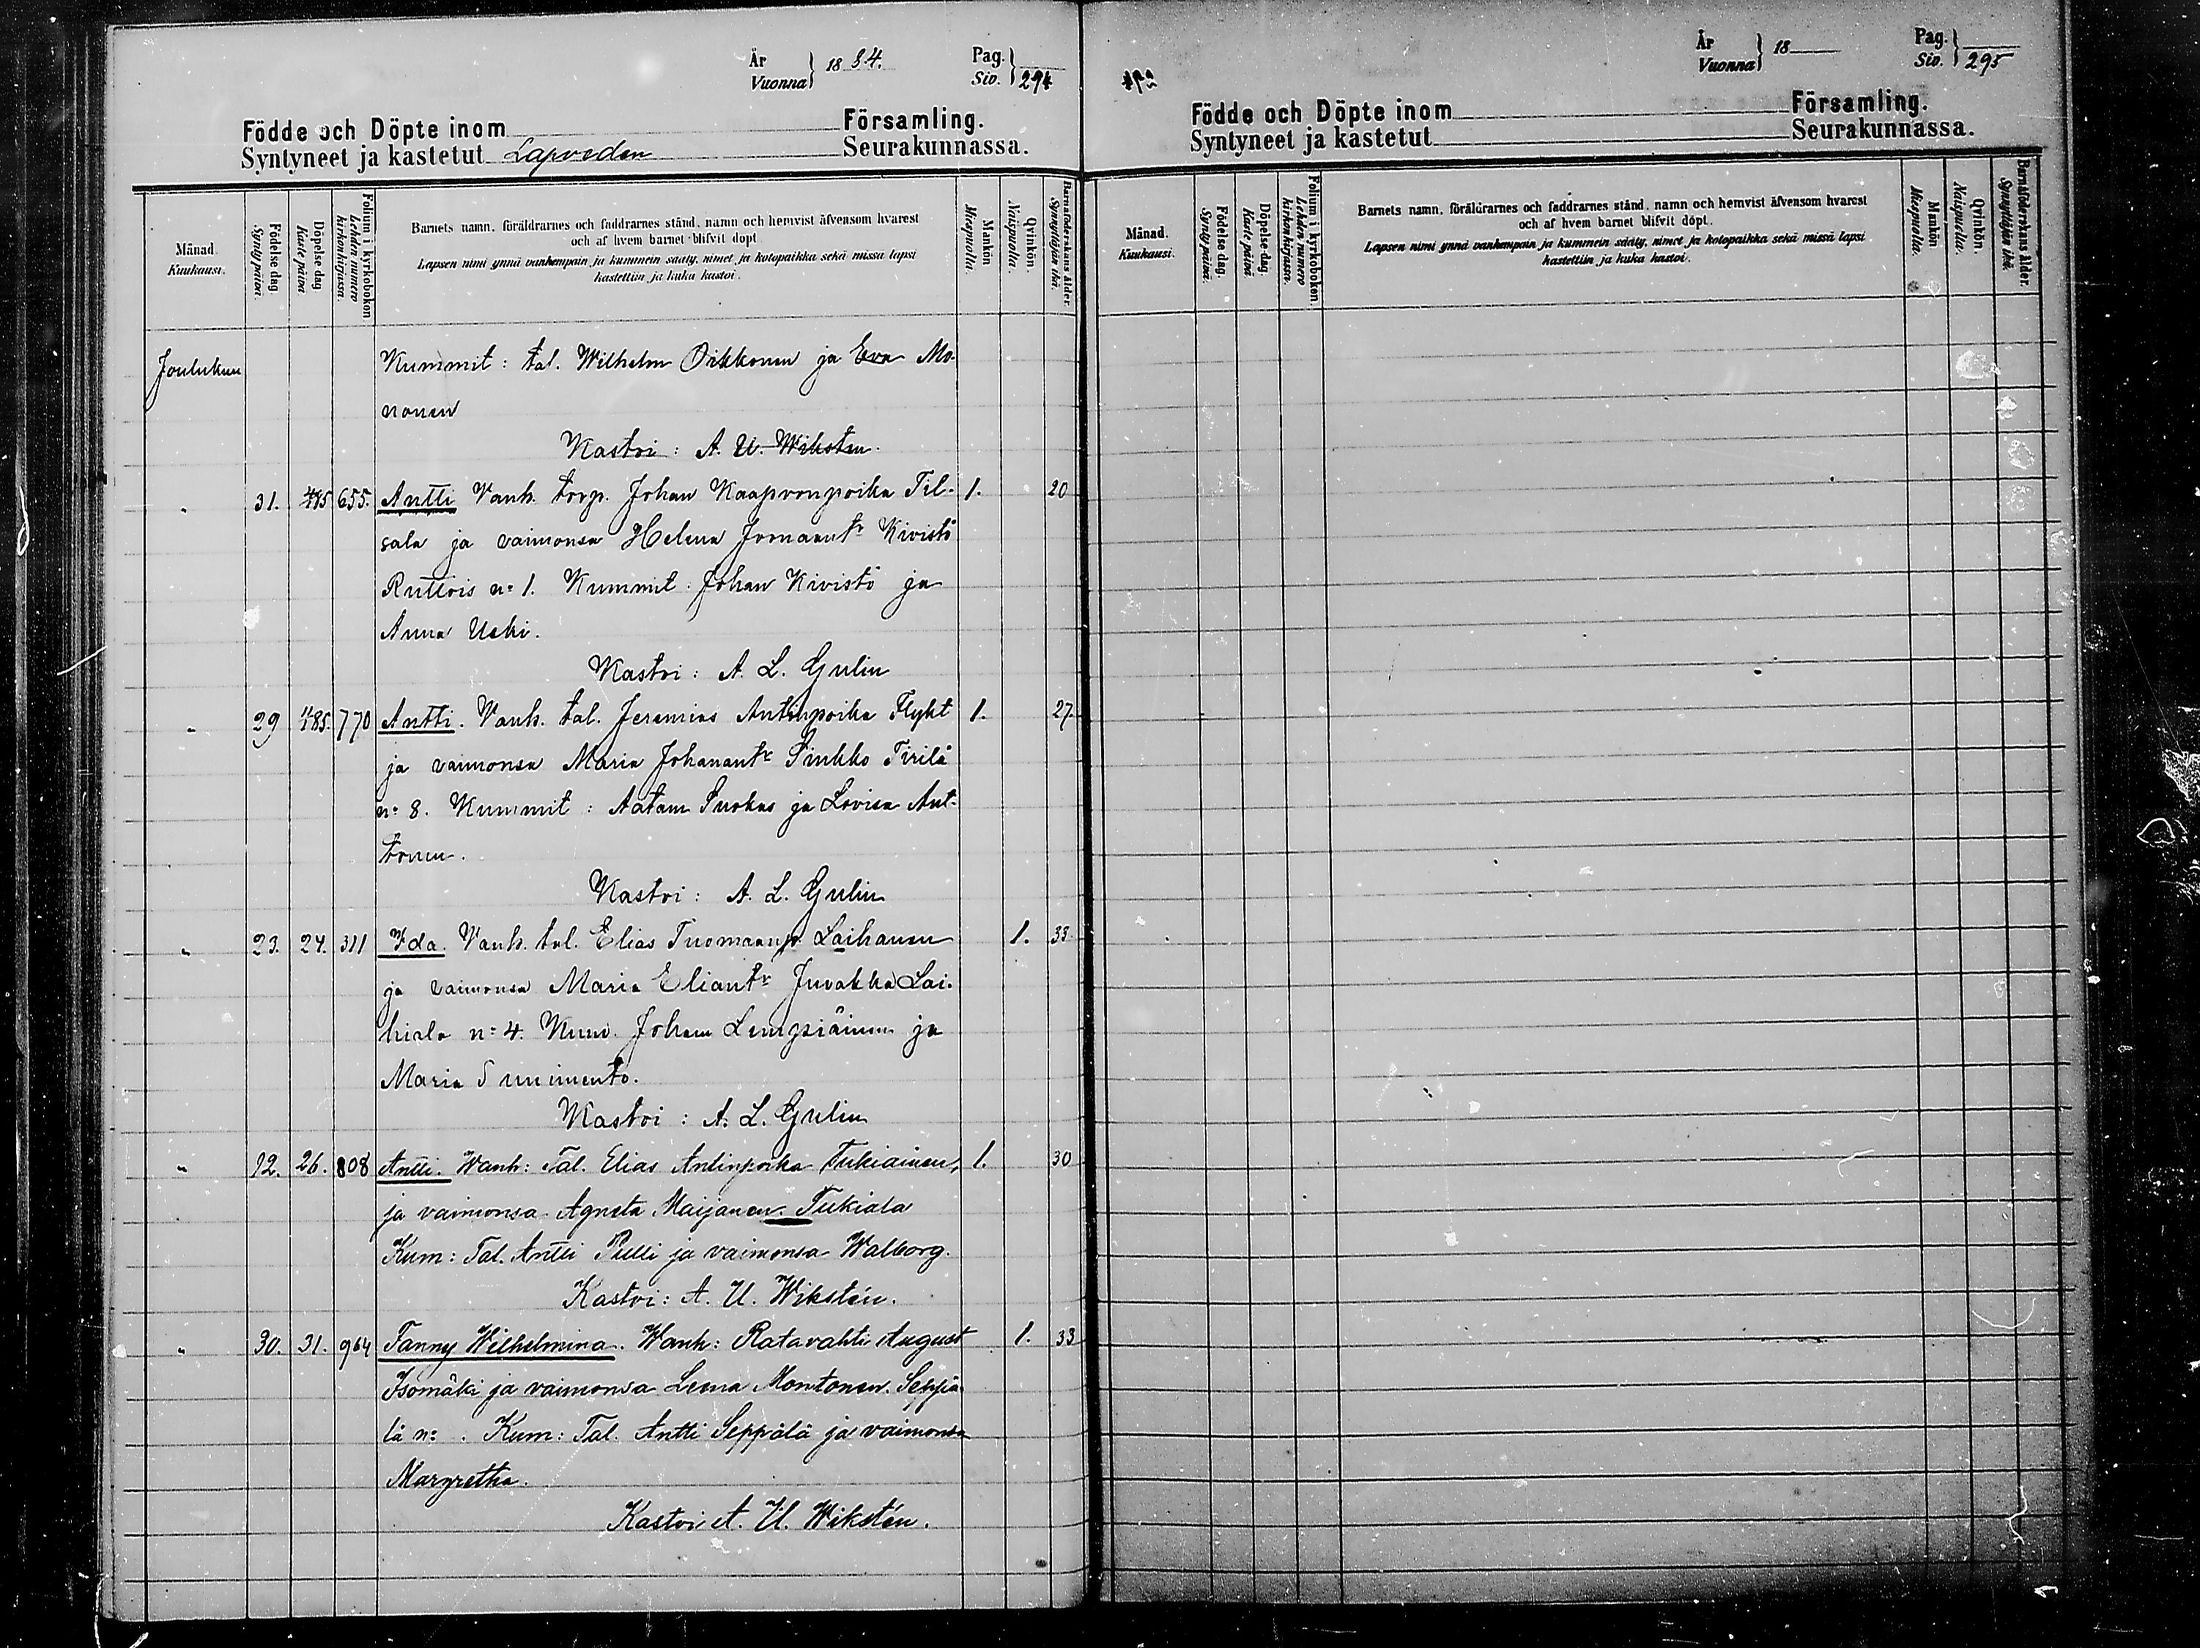 År
Vuonna } 18 84.
Pag.
Siv. } 294
Födde och Döpte inom Församling.
Syntyneet ja kastetut Lapveden Seurakunnassa.
Månad. Kuukausi.
Födelse dag. Synty päivä.
Döpelse dag Kaste päivä
Folium i kyrkoboken Lehden numero kirkonkirjassa.
Barnets namn, föräldrarnes och faddrarnes stånd, namn och hemvist äfvensom hvarest
och af hvem barnet blifvit döpt.
Lapsen nimi ynnä vanhempain ja kummein sääty, nimet ja kotopaikka sekä missä lapsi
kastettiin ja kuka kastoi.
Mankön Miespuolia.
Qvinkön. Naispuolia.
Barnaföderskans ålder. Synnyttäjän ikä.
Joulukuu Kummit: tal. Wilhelm Oikkonen ja Eva Mo-
nonen
Kastoi: A. U. Wiksten.
" 31. 655. Antti Vanh. torp. Johan Kaapronpoika Til- 1. 20
sala ja vaimonsa Helena Jomaant^r Kivistö
Ruttois n:o 1. Kummit: Johan Kivistö ja
Anna Uski.
Kastoi: A. L. Gulin
" 29 1/1 85. 770 Antti. Vanh. tal. Jeremias Antinpoika Flykt 1. 27.
ja vaimonsa Maria Johanant^r Sinkko Tirilä
n:o 8. Kummit: Aatam Suokas ja Lovisa Ant-
tonen.
Kastoi: A. L. Gulin
" 23. 27. 311 Ida. Vanh. tal. Elias Tuomaanp. Laihanen 1. 33
ja vaimonsa Maria Eliant^r Juvakka Lai-
hiala n:o 4. Kumm. Johan Lempiäinen ja
Maria Sunimento.
Kastoi: A. L. Gulin
" 12. 26. 808 Antti. Wanh: Tal. Elias Antinpoika Tukiainen, 1. 30
ja vaimonsa Agneta Maijanen. Tukiala
Kum: Tal. Antti Pulli ja vaimonsa Walborg.
Kastoi: A. U. Wikstén.
" 30. 31. 964 Fanny Wilhelmina. Wanh: Ratavahti August 1. 33
Isomäki ja vaimonsa Leena Montonen. Seppä-
lä n:o . Kum: Tal. Antti Seppälä ja vaimonsa
Margretha.
Kastoi A. U. Wikstén.
År
Vuonna } 18
Pag.
Siv. } 295
Födde och Döpte inom Församling.
Syntyneet ja kastetut Seurakunnassa.
Månad. Kuukausi.
Födelse dag. Synty päivä.
Döpelse dag Kaste päivä
Folium i kyrkoboken. Lehden numero kirkonkirjassa.
Barnets namn, föräldrarnes och faddrarnes stånd, namn och hemvist äfvensom hvarest
och af hvem barnet blifvit döpt.
Lapsen nimi ynnä vanhempain ja kummein sääty, nimet ja kotopaikka sekä missä lapsi
kastettiin ja kuka kastoi.
Mankön Miespuolia.
Qvinkön. Naispuolia.
Barnaföderskans ålder. Synnyttäjän ikä.